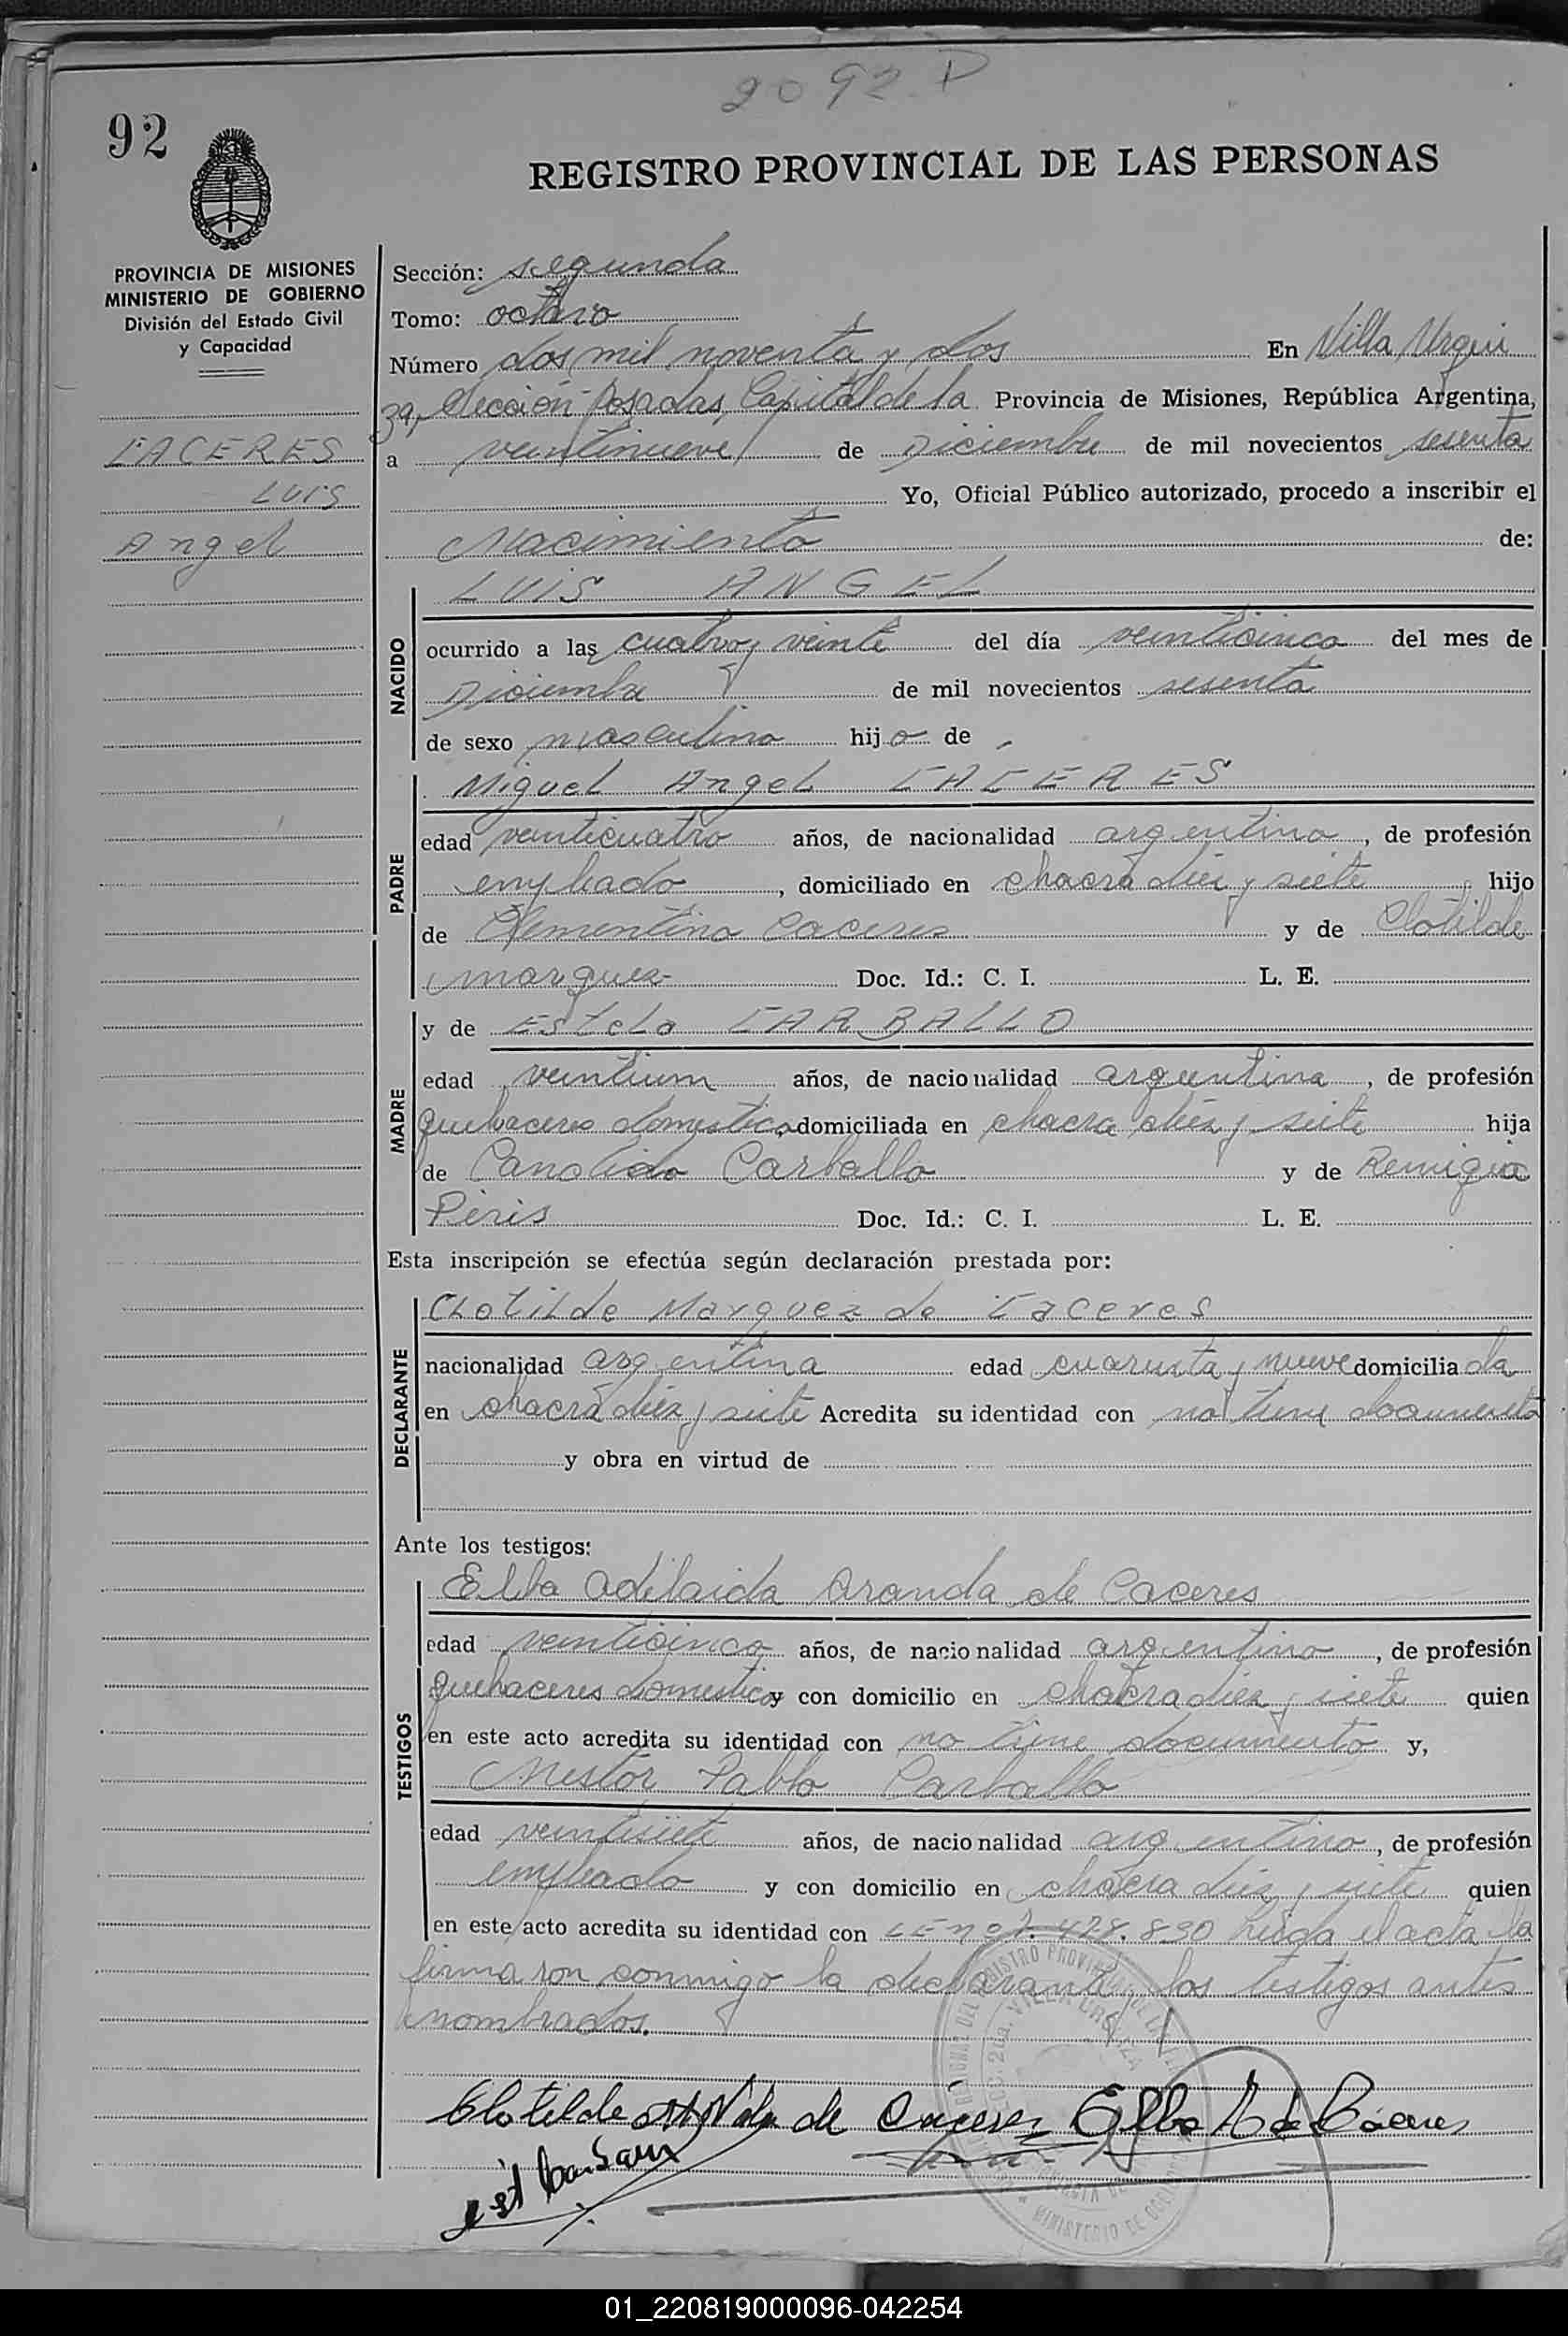 2092 D
92
REGISTRO PROVINCIAL DE LAS PERSONAS
PROVINCIA DE MISIONES
MINISTERIO DE GOBIERNO
División del Estado Civil
y Capacidad
CACERES
LUIS
Angel
Sección: segunda
Tomo: octavo
Número dos mil noventa y dos En Villa Urqui
3a, Sección Posadas, Capital de la Provincia de Misiones, República Argentina,
a veintinueve de Diciembre de mil novecientos sesenta
Yo, Oficial Público autorizado, procedo a inscribir el
Nacimiento de:
NACIDO
LUIS ANGEL
ocurrido a las cuatro y veinte del día veinticinco del mes de
Diciembre de mil novecientos sesenta
de sexo masculino hijo de
PADRE
Miguel Angel CACERES
edad veinticuatro años, de nacionalidad argentino, de profesión
empleado, domiciliado en chacra diez y siete hijo
de Clementino Caceres y de Clotilde
Marquez Doc. Id.: C. I. L. E.
MADRE
y de Estela CARBALLO
edad veintium años, de nacionalidad argentina, de profesión
quehaceres domesticos domiciliada en chacra diez y siete hija
de Candido Carballo y de Remigia
Piris Doc. Id.: C. I. L. E.
Esta inscripción se efectúa según declaración prestada por:
DECLARANTE
Clotilde Marquez de Caceres
nacionalidad argentina edad cuarenta y nueve domiciliada
en chacra diez y siete Acredita su identidad con no tiene documento
y obra en virtud de
Ante los testigos:
TESTIGOS
Elba Adelaida Aranda de Caceres
edad veinticinco años, de nacionalidad argentina, de profesión
quehaceres domesticos y con domicilio en chacra diez y siete quien
en este acto acredita su identidad con no tiene documento y,
Nestor Pablo Carballo
edad veintisiete años, de nacionalidad argentino, de profesión
empleado y con domicilio en chacra diez y siete quien
en este acto acredita su identidad con LE nº 7.478.890 Leida el acta la
firmaron conmigo la declarante y los testigos antes
nombrados.
Clotilde de Caceres Elba A de Cáceres
01_220819000096-042254